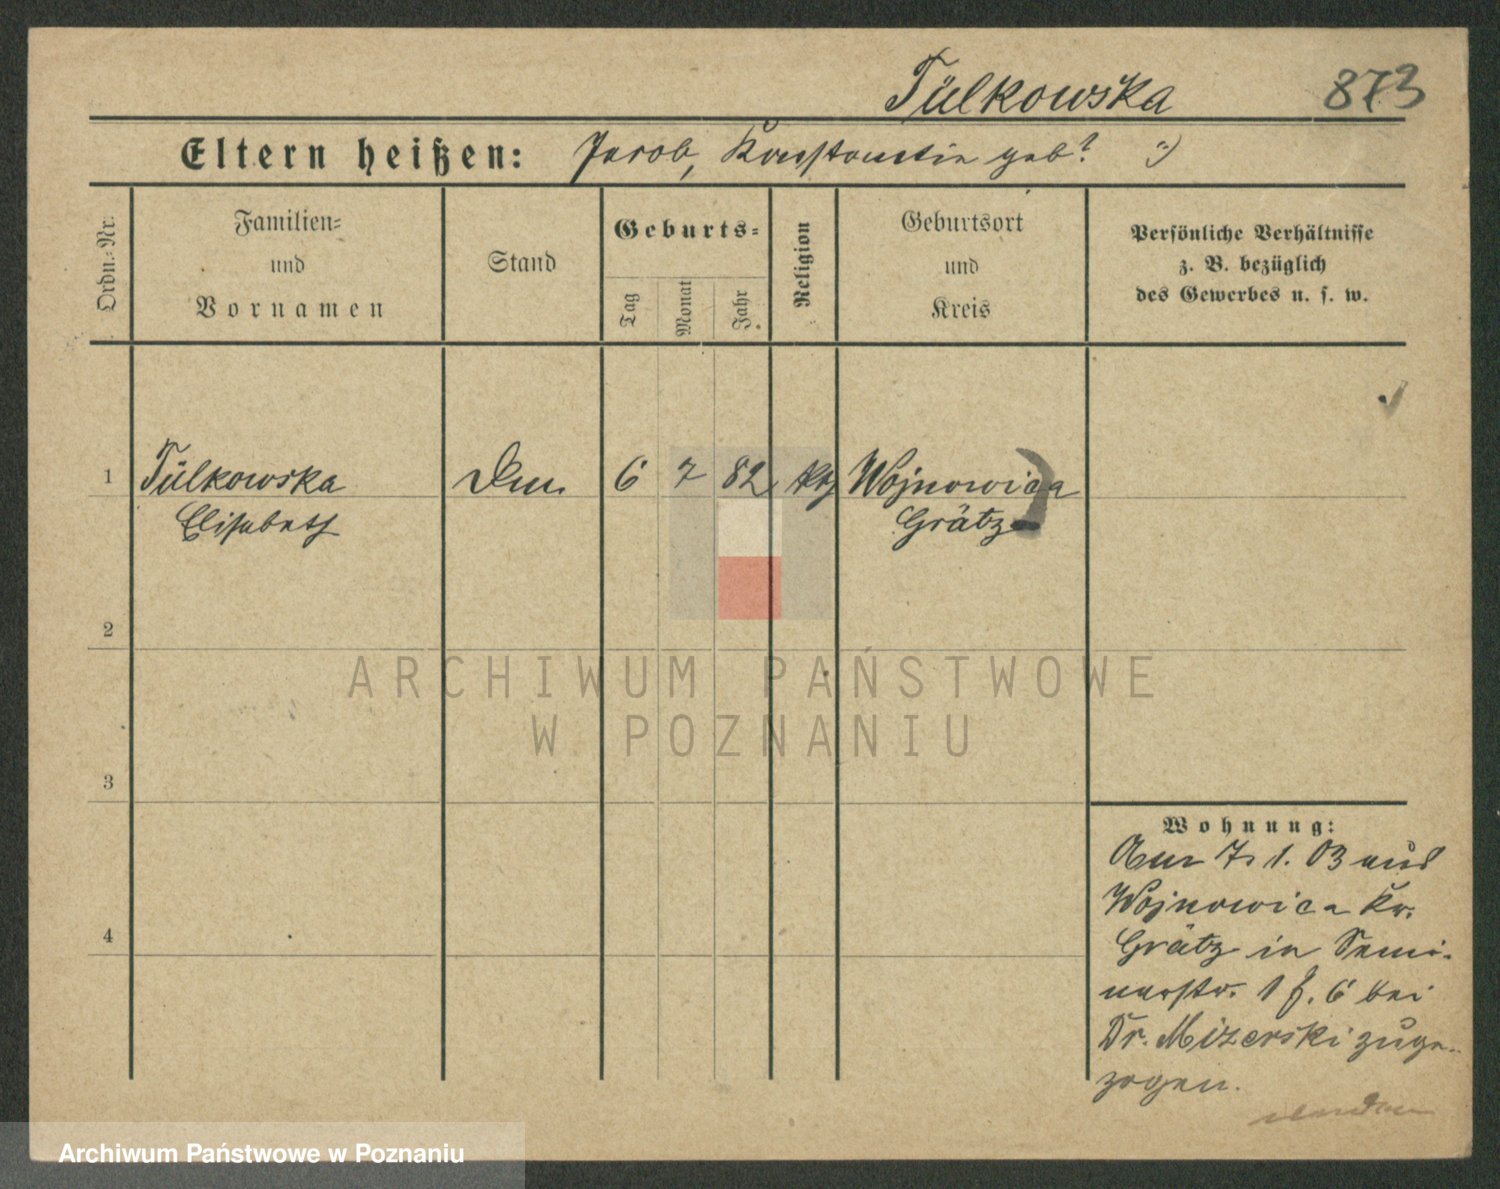 Tulkowska 873
Eltern heißen: Jacob, Konstantia geb? :)
Ordn.-Nr.
Familien-
und
Vornamen
Stand
Geburts-
Tag
Monat
Jahr
Religion
Geburtsort
und
Kreis
Persönliche Verhältnisse
z. B. bezüglich
des Gewerbes u. s. w.
1 Tulkowska 6 7 82 kth Wojnowica
Elisabeth Grätz
2
3
4
Wohnung:
Am 7. 1. 03 aus
Wojnowica Kr.
Grätz in Semi-
narstr. 1 f. 6 bei
Dr. Mizerski zuge-
zogen.
ARCHIWUM PAŃSTWOWE
W POZNANIU
Archiwum Państwowe w Poznaniu